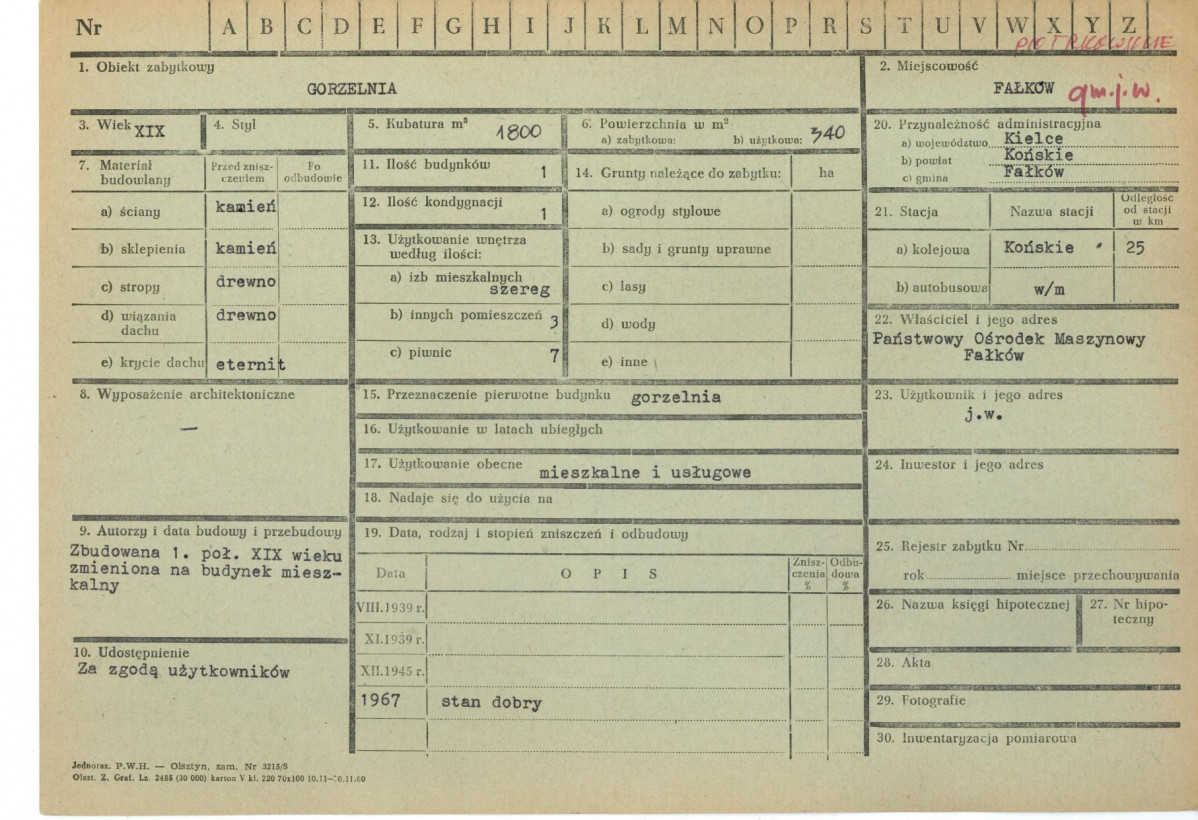 Nr A B C D E F G H I J K L M N O P R S T U V W X Y Z
1. Obiekt zabytkowy
GORZELNIA
2. Miejscowość
FAŁKÓW gm.j.w.
3. Wiek XIX
4. Styl
5. Kubatura m³ 1800
6. Powierzchnia w m²
a) zabytkowa: b) użytkowa: 340
7. Materiał budowlany
Przed znisz-
czeniem
Po
odbudowie
a) ściany kamień
b) sklepienia kamień
c) stropy drewno
d) wiązania
dachu
drewno
e) krycie dachu eternit
8. Wyposażenie architektoniczne
—
9. Autorzy i data budowy i przebudowy
Zbudowana 1. poł. XIX wieku
zmieniona na budynek miesz-
kalny
10. Udostępnienie
Za zgodą użytkowników
11. Ilość budynków 1
12. Ilość kondygnacji 1
13. Użytkowanie wnętrza
według ilości:
a) izb mieszkalnych
szereg
b) innych pomieszczeń 3
c) piwnic 7
14. Grunty należące do zabytku: ha
a) ogrody stylowe
b) sady i grunty uprawne
c) lasy
d) wody
e) inne
15. Przeznaczenie pierwotne budynku gorzelnia
16. Użytkowanie w latach ubiegłych
17. Użytkowanie obecne mieszkalne i usługowe
18. Nadaje się do użycia na
19. Data, rodzaj i stopień zniszczeń i odbudowy
Data
O P I S
Znisz-
czenia
%
Odbu-
dowa
%
VIII.1939 r.
XI.1939 r.
XII.1945 r.
1967 stan dobry
20. Przynależność administracyjna
a) województwo Kielce
b) powiat Końskie
c) gmina Fałków
21. Stacja
Nazwa stacji
Odległość
od stacji
w km
a) kolejowa Końskie 25
b) autobusowa w/m
22. Właściciel i jego adres
Państwowy Ośrodek Maszynowy
Fałków
23. Użytkownik i jego adres
j.w.
24. Inwestor i jego adres
25. Rejestr zabytku Nr
rok miejsce przechowywania
26. Nazwa księgi hipotecznej
27. Nr hipo-
teczny
28. Akta
29. Fotografie
30. Inwentaryzacja pomiarowa
Jednoraz. P.W.H. — Olsztyn, zam. Nr 3215/S
Olszt. Z. Graf. Lz. 2485 (30 000) karton V kl. 220 70x100